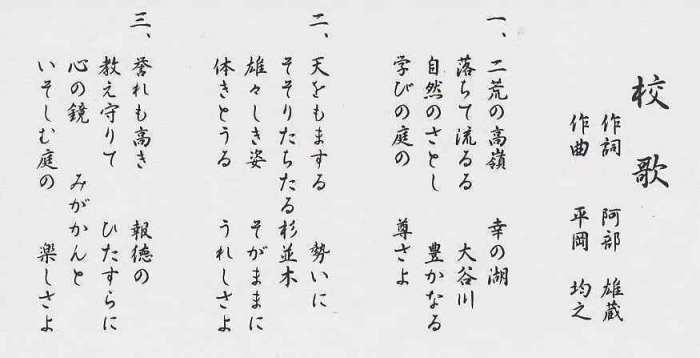 校歌
作詞　阿部　雄蔵
作曲　平岡　均之
一、二荒の高嶺　幸の湖
落ちて流るる　大谷川
自然のさとし　豊かなる
学びの庭の　尊さよ
二、天をもまする　勢いに
そそりたちたる杉並木
雄々しき姿　そがままに
体きとうる　うれしさよ
三、誉れも高き　報徳の
教え守りて　ひたすらに
心の鏡　みがかんと
いそしむ庭の　楽しさよ